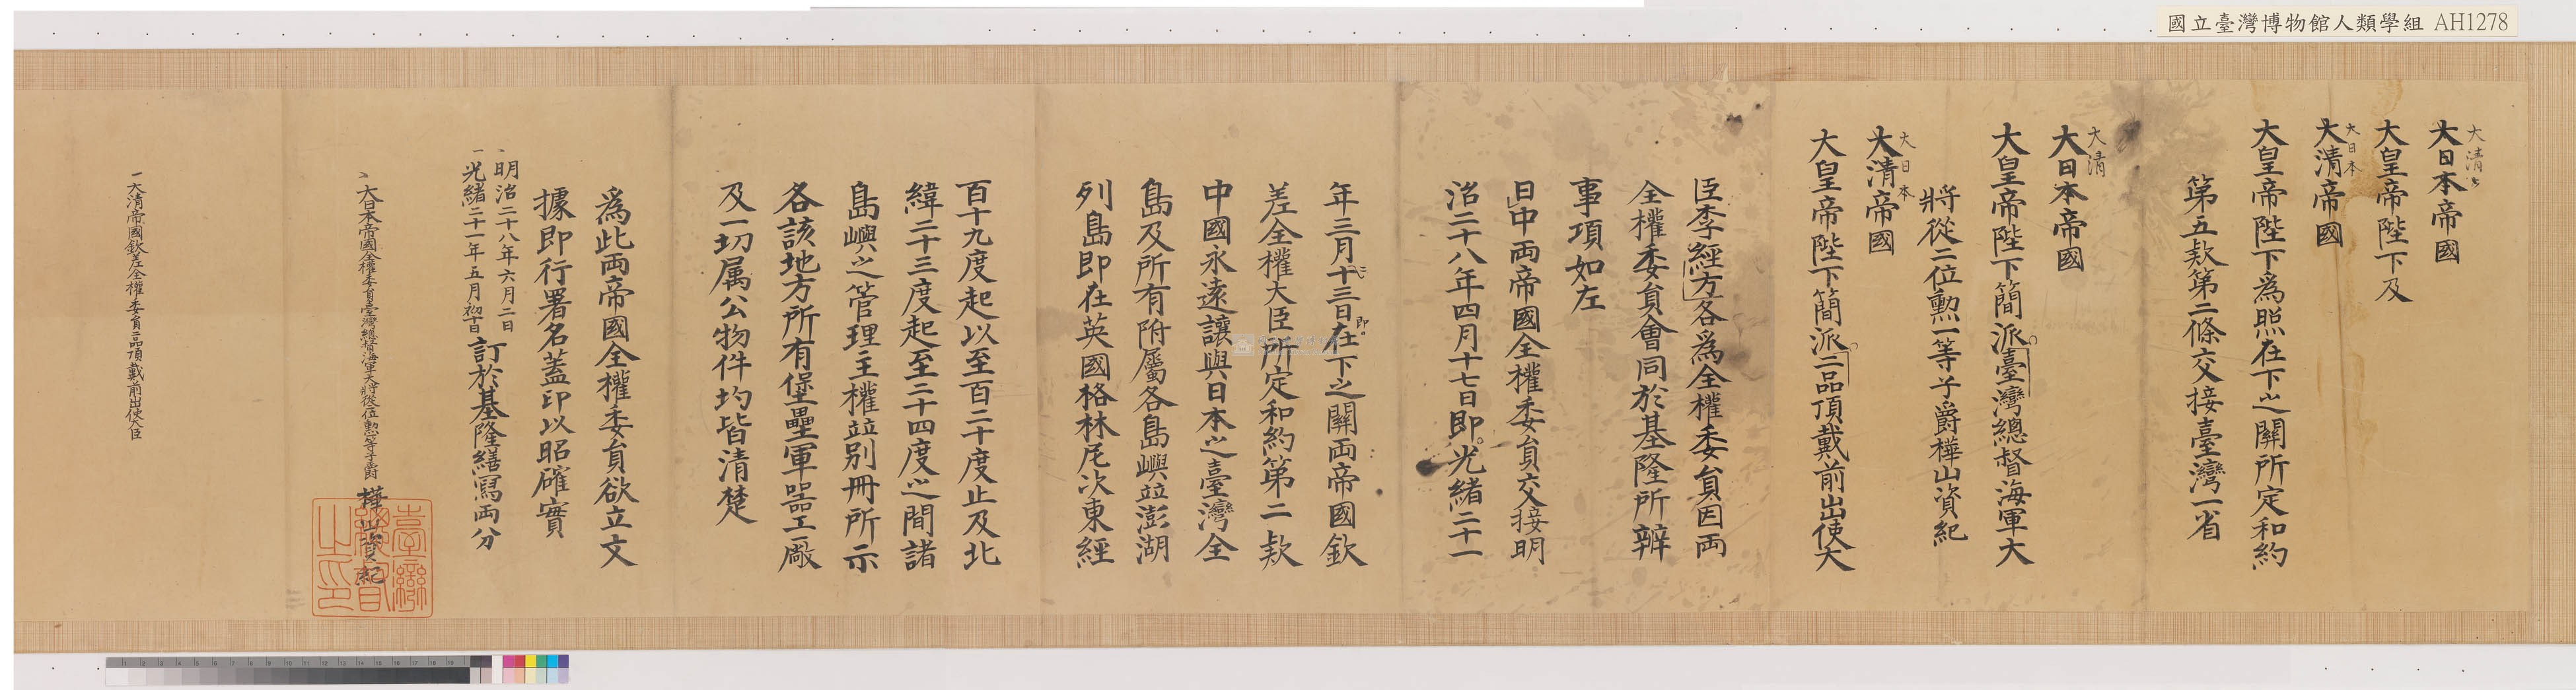 國立臺灣博物館人類學組 AH1278
大清
大日本帝國
大皇帝陛下及
大日本
大清帝國
大皇帝陛下為照在下之關所定和約
第五款第二條交接臺灣一省
大清
大日本帝國
大皇帝陛下簡派臺灣總督海軍大
將從二位勲一等子爵樺山資紀
大日本
大清帝國
大皇帝陛下簡派二品頂戴前出使大
臣李經方各為全權委員因両
全權委員會同於基隆所辨
事項如左
日中両帝國全權委員交接明
治二十八年四月十七日即光緒二十一
年三月十三日在下之關両帝國欽
即
差全權大臣所定和約第二款
中國永遠讓與日本之臺灣全
島及所有附屬各島嶼竝澎湖
列島即在英國格林尼次東經
百十九度起以至百二十度止及北
緯二十三度起至二十四度之間諸
島嶼之管理主權竝別冊所示
各該地方所有堡壘軍器工廠
及一切属公物件均皆清楚
為此両帝國全權委員欲立文
據即行署名蓋印以昭確實
明治二十八年六月二日
光緒二十一年五月初十日
訂於基隆繕寫両分
大日本帝國全權委員臺灣總督海軍大將從二位勲一等子爵 樺山資紀
臺灣總督之印
大清帝國欽差全權委員二品頂戴前出使大臣